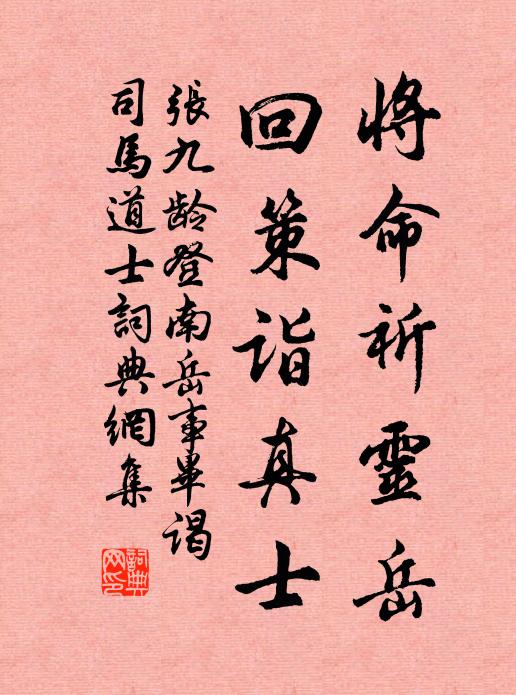 將命祈靈岳
回策詣真士
張九龄登南岳事畢謁
司馬道士詞典網集
詞典网印